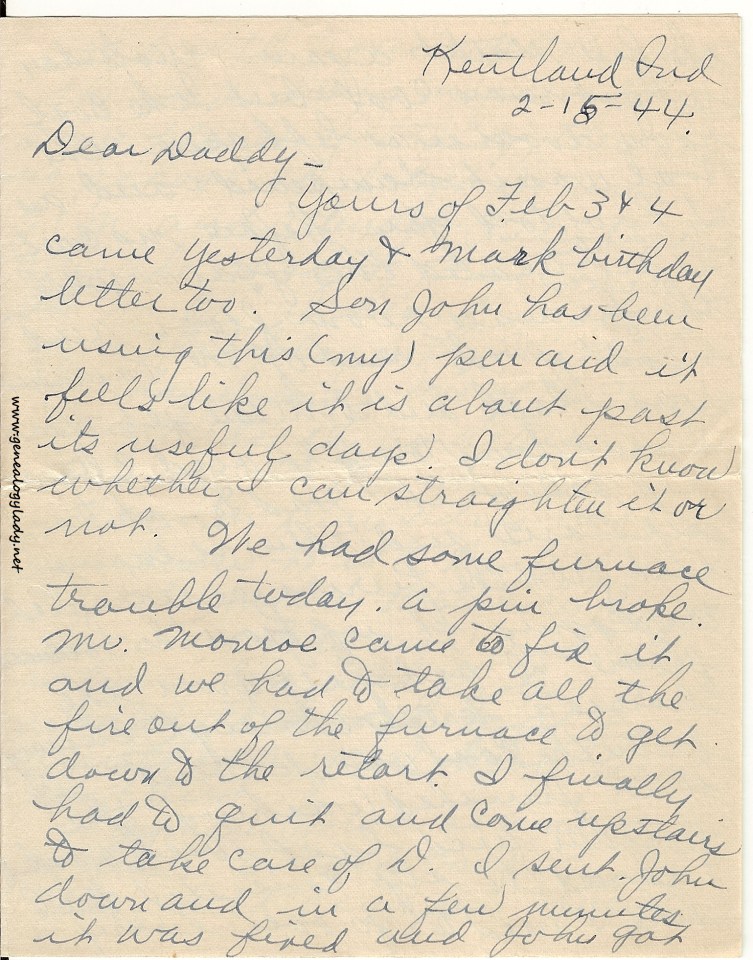 Kentland Ind
2-15-44.
Dear Daddy-
Yours of Feb 3 & 4
came yesterday & Mark birthday
letter too. Son John has been
using this (my) pen and it
feels like it is about past
its useful days. I don't know
whether I can straighten it or
not. We had some furnace
trouble today. A pin broke.
Mr. Monroe came to fix it
and we had to take all the
fire out of the furnace to get
down to the retart. I finally
had to quit and come upstairs
to take care of D. I sent John
down and in a few minutes
it was fixed and John got
www.genealogylady.net